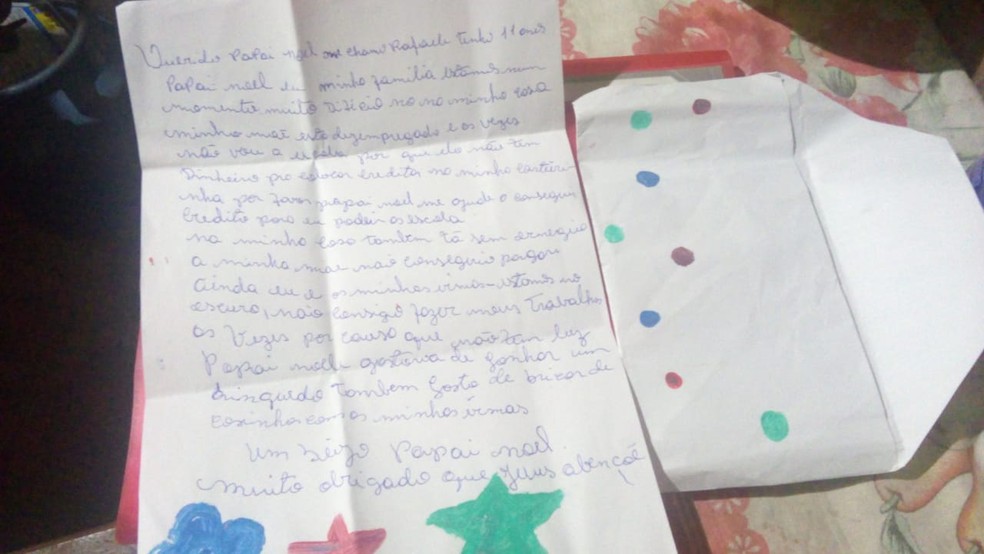 Querido Papai noel me chamo Rafaela tenho 11 anos
Papai noel eu minha familia estamos num
momento muito dificio no na minha casa
minha mãe esta dezempregada e as vezes
não vou a escola por que ela não tem
Dinheiro pra colocar creditos na minha carteiri-
nha por favor papai noel me ajude a conseguir
Credito para eu poder a escola
na minha casa também tá sem
a minha mãe não conseguio pagar
ainda eu e as minhas irmãs estamos no
escuro, não consigo fazer meus Trabalhos
as Vezes por causa que não tem luz
Papai noel gostaria de ganhar um
brinquedo Tambem Gosto de de
com as minhas irmas
um Papai noel.
muito obrigado que Jesus abençoe